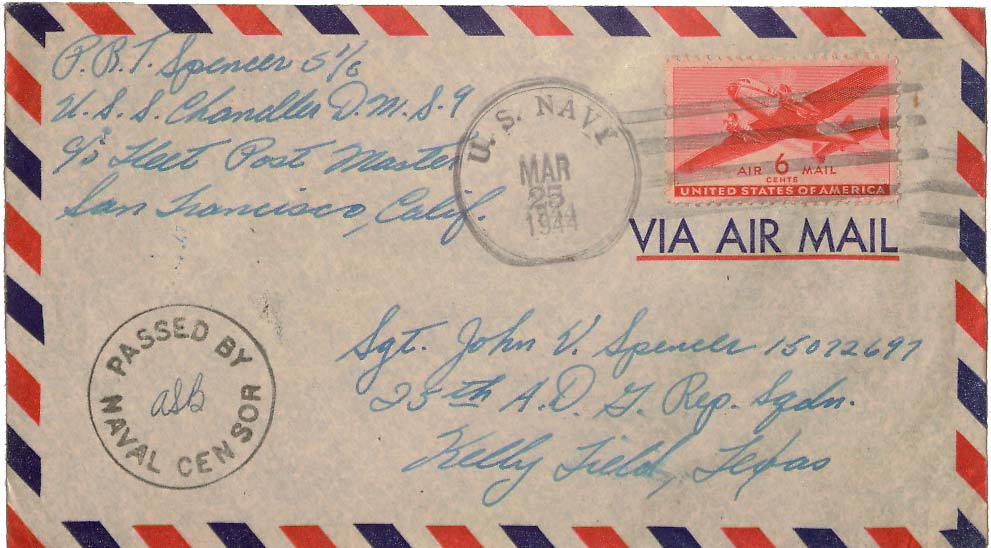 P.R.T. Spencer S 1/c
U.S.S. Chandler D.M.S. 9
c/o Fleet Post Master
San Francisco, Calif.
U.S. NAVY
MAR
25
1944
AIR 6 MAIL
CENTS
UNITED STATES OF AMERICA
VIA AIR MAIL
PASSED BY
NAVAL CENSOR
Sgt. John V. Spencer 15072697
25th A.D.G. Rep. Sqdn.
Kelly Field, Texas